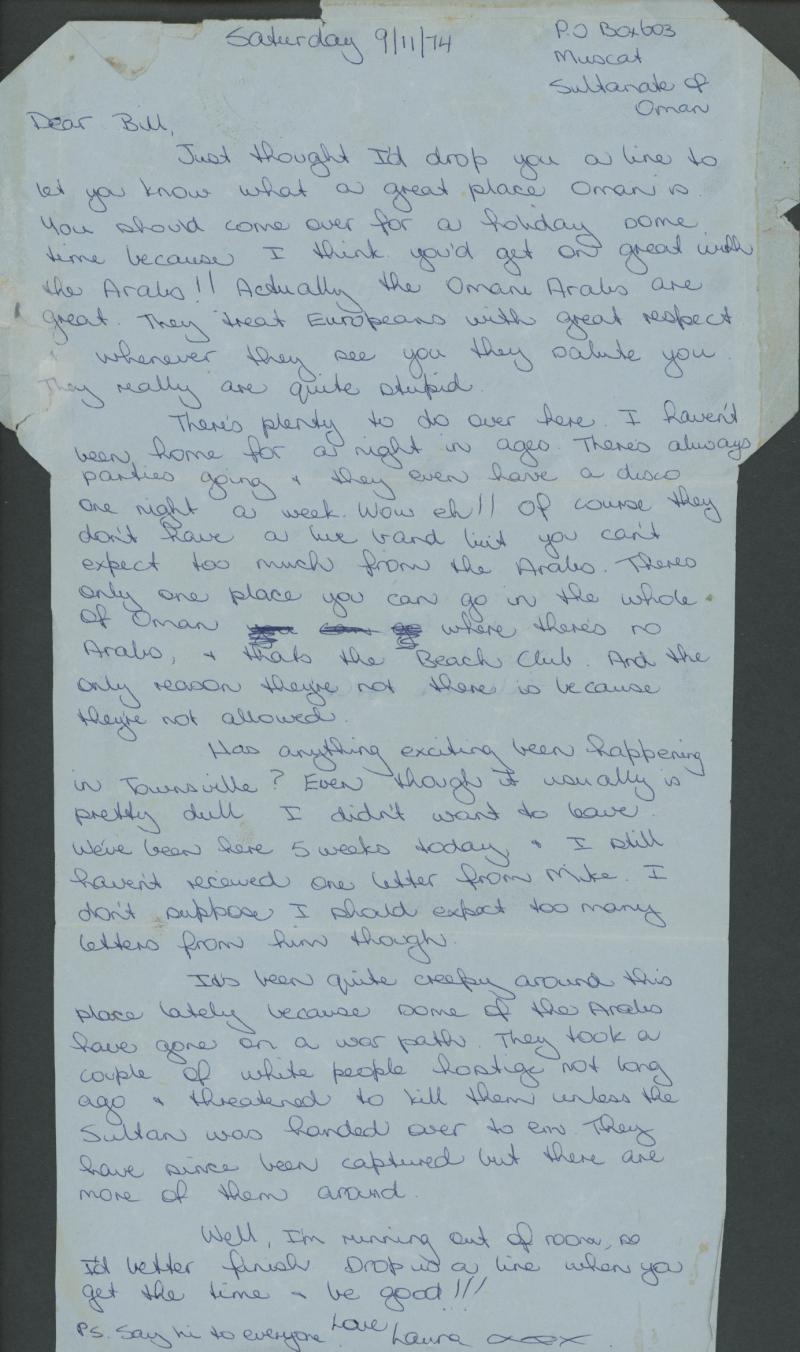 Saturday 9/11/74
P.O Box603
Muscat
Sultanate of
Oman
Dear Bill,
Just thought I'd drop you a line to
let you know what a great place Oman is.
You should come over for a holiday some
time because I think you'd get on great with
the Arabs!! Actually the Omani Arabs are
great. They treat Europeans with great respect
& whenever they see you they salute you.
They really are quite stupid.
There's plenty to do over here. I haven't
been home for a night in ages. There's always
parties going & they even have a disco
one night a week. Wow eh!! Of course they
don't have a live band but you can't
expect too much from the Arabs. Theres
only one place you can go in the whole
of Oman where there's no
Arabs, & thats the Beach Club. And the
only reason they're not there is because
they're not allowed.
Has anything exciting been happening
in Townsville? Even though it usually is
pretty dull I didn't want to leave.
We've been here 5 weeks today & I still
haven't received one letter from Mike. I
don't suppose I should expect too many
letters from him though.
It's been quite creepy around this
place lately because some of the Arabs
have gone on a war path. They took a
couple of white people hostige not long
ago & threatened to kill them unless the
Sultan was handed over to em. They
have since been captured but there are
more of them around.
Well, I'm running out of room, so
I'd better finish. Drop us a line when you
get the time & be good!!!
Love
P.S. Say hi to everyone Laura xxxx